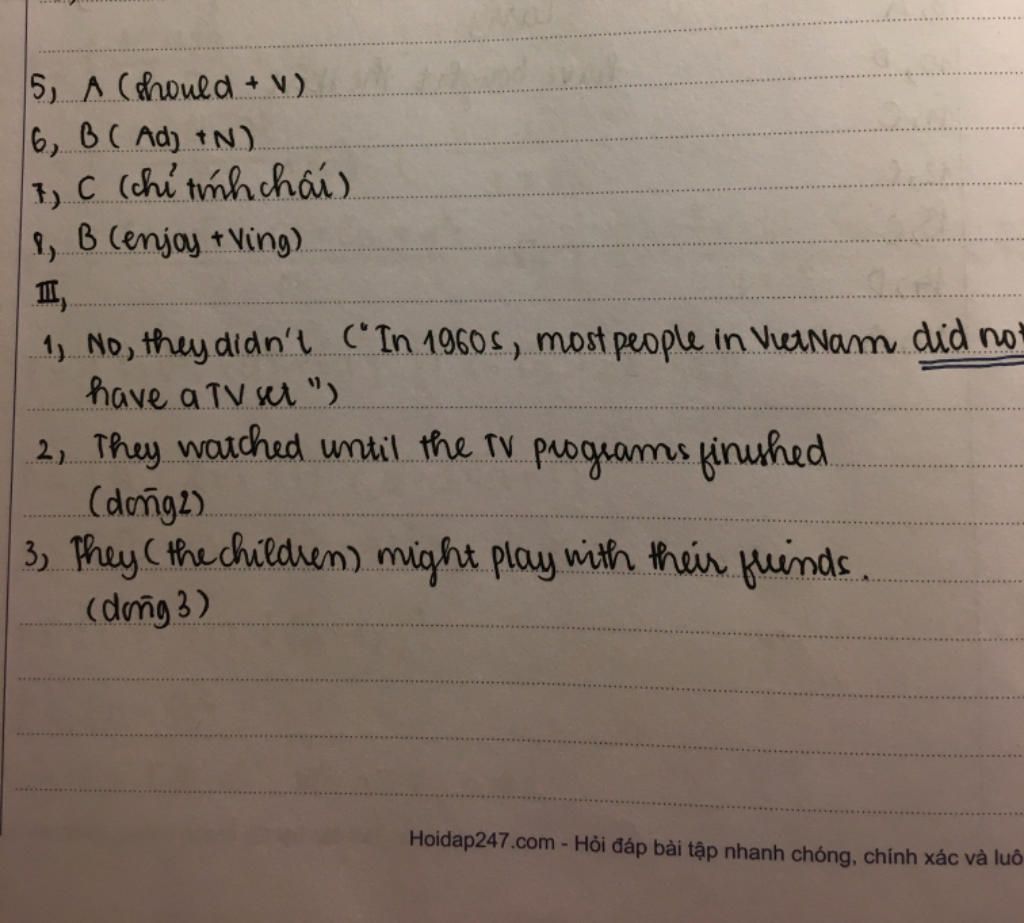 5, A (should + V)
6, B ( Adj + N)
7, C (chỉ tính chái)
8, B (enjoy + Ving)
III,
1, No, they didn't ("In 1960s, most people in VietNam did not
have a TV set")
2, They watched until the TV programs finished
(dòng 2)
3, They (the children) might play with their friends.
(dòng 3)
Hoidap247.com - Hỏi đáp bài tập nhanh chóng, chính xác và luô